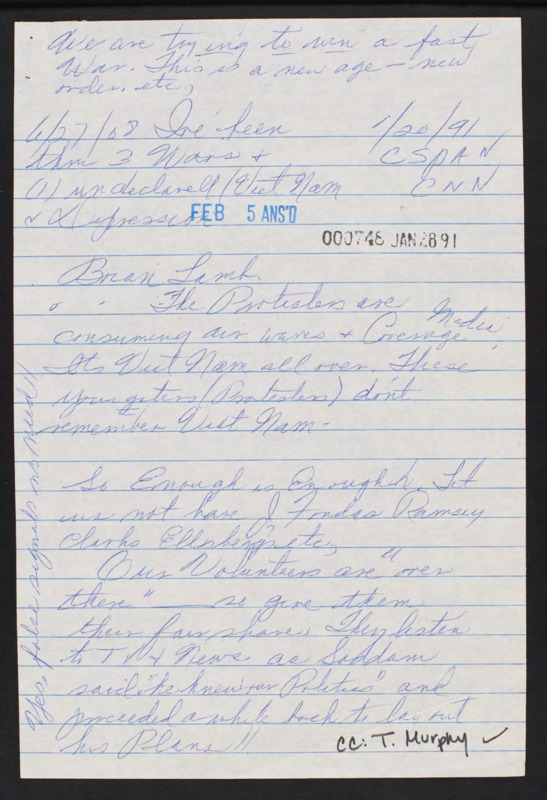 We are trying to win a fast
War. This is a new age - new
order. etc,
6/27/08 I've been
thru 3 Wars +
(1) undeclared (Viet Nam
& Depression
1/20/91
CSPAN
CNN
FEB 5 ANS'D
000746 JAN 28 91
Brian Lamb.
The Protesters are
consuming air waves + Coverage Media,
Its Viet Nam all over. These
youngsters (Protesters) dont
remember Viet Nam -
So Enough is Enough. Let
us not have J Fondas Ramsey
Clarks Ellsbergs etc,
Our Volunteers are "over
there" — so give them
their fair share. They listen
to TV + News as Saddam
said "he knew our Politics" and
proceeded a while back to lay out
his Plans!!
Yes, false signals no need!!
cc: T. Murphy ✓